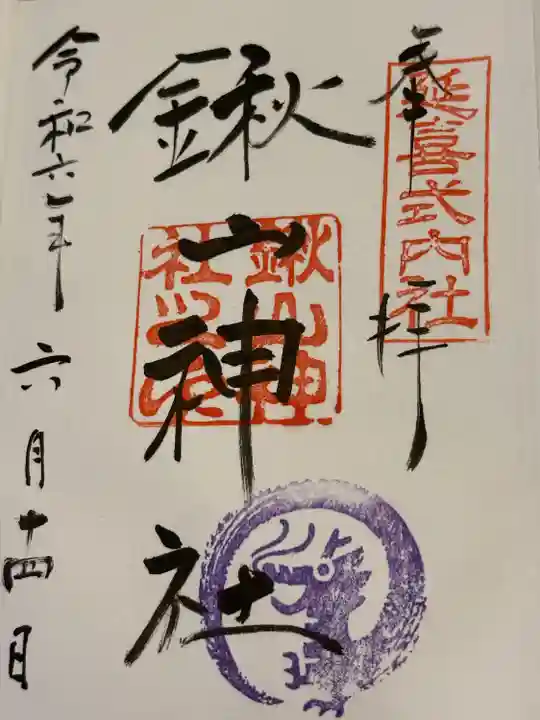 奉拝
延喜式内社
鍬山神社
鍬山神社之印
令和六年六月十四日